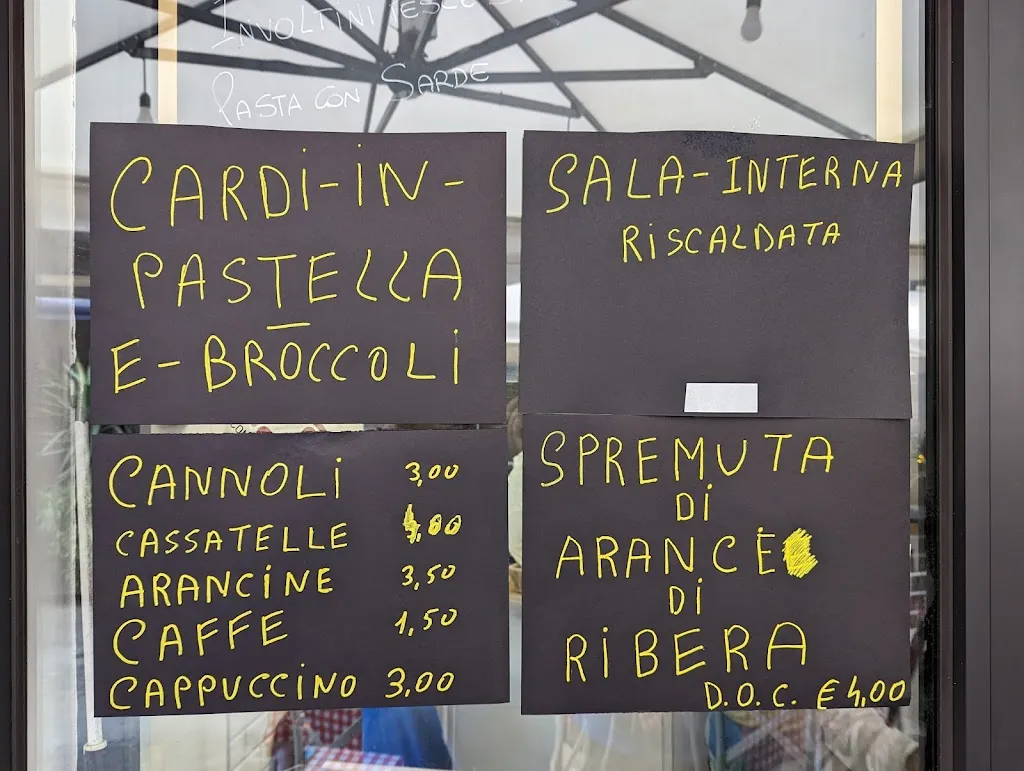 INVOLTINI
PASTA CON SARDE
CARDI-IN-
PASTELLA
E-BROCCOLI
SALA-INTERNA
RISCALDATA
CANNOLI 3,00
CASSATELLE
ARANCINE 3,50
CAFFE 1,50
CAPPUCCINO 3,00
SPREMUTA
DI
ARANCE
DI
RIBERA
D.O.C. € 4,00